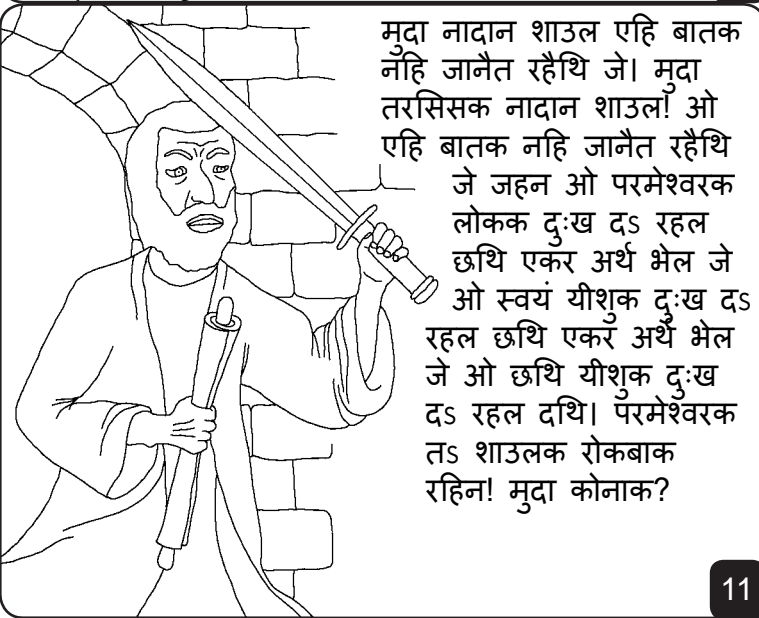 मुदा नादान शाउल एहि बातक
नहि जानैत रहैथि जे। मुदा
तरसिसक नादान शाउल! ओ
एहि बातक नहि जानैत रहैथि
जे जहन ओ परमेश्वरक
लोकक दुःख दs रहल
छथि एकर अर्थ भेल जे
ओ स्वयं यीशुक दुःख दs
रहल छथि एकर अर्थ भेल
जे ओ छथि यीशुक दुःख
दs रहल दथि। परमेश्वरक
तs शाउलक रोकबाक
रहिन! मुदा कोनाक?
11